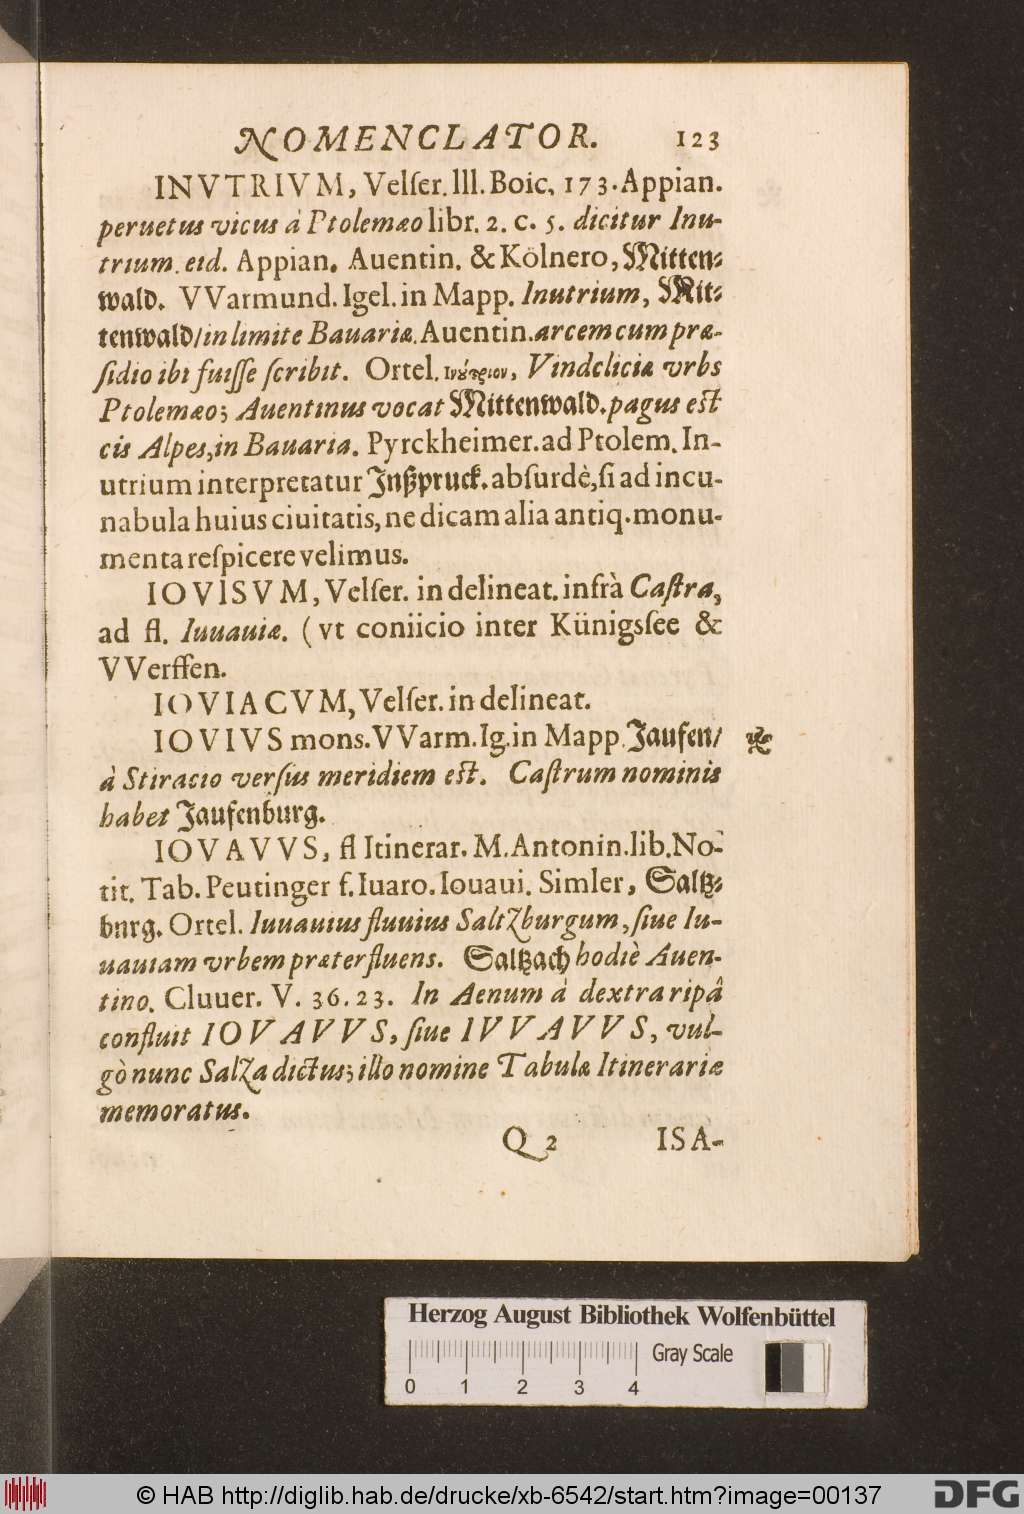 NOMENCLATOR. 123
INVTRIVM, Velſer. lll. Boic. 173. Appian.
peruetus vicus à Ptolemæo libr. 2. c. 5. dicitur Inu-
trium. eid. Appian. Auentin. & Kölnero, Mitten-
wald. VVarmund. Igel. in Mapp. Inutrium, Mit-
tenwald/ in limite Bauariæ. Auentin. arcem cum præ-
ſidio ibi fuiſſe ſcribit. Ortel. Ινούτριον, Vindeliciæ vrbs
Ptolemæo; Auentinus vocat Mittenwald. pagus eſt
cis Alpes, in Bauaria. Pyrckheimer. ad Ptolem. In-
utrium interpretatur Jnßpruck. abſurdè, ſi ad incu-
nabula huius ciuitatis, ne dicam alia antiq. monu-
menta reſpicere velimus.
IOVISVM, Velſer. in delineat. infrà Caſtra,
ad fl. Iuuauiæ. (vt coniicio inter Künigsſee &
VVerffen.
IOVIACVM, Velſer. in delineat.
IOVIVS mons. VVarm. Ig. in Mapp. Jaufen/
à Stiracio verſus meridiem eſt. Caſtrum nominis
habet Jaufenburg.
IOVAVVS, fl Itinerar. M. Antonin. lib. No-
tit. Tab. Peutinger f. Iuaro. Iouaui. Simler, Saltz-
burg. Ortel. Iuuauius fluuius Saltzburgum, ſiue Iu-
uauiam vrbem præterfluens. Saltzach hodiè Auen-
tino. Cluuer. V. 36. 23. In Aenum à dextra ripâ
confluit IOVAVVS, ſiue IVVAVVS, vul-
gò nunc Salza dictus; illo nomine Tabulæ Itinerariæ
memoratus.
Q 2 ISA-
Herzog August Bibliothek Wolfenbüttel
Gray Scale
0 1 2 3 4
© HAB http://diglib.hab.de/drucke/xb-6542/start.htm?image=00137
DFG